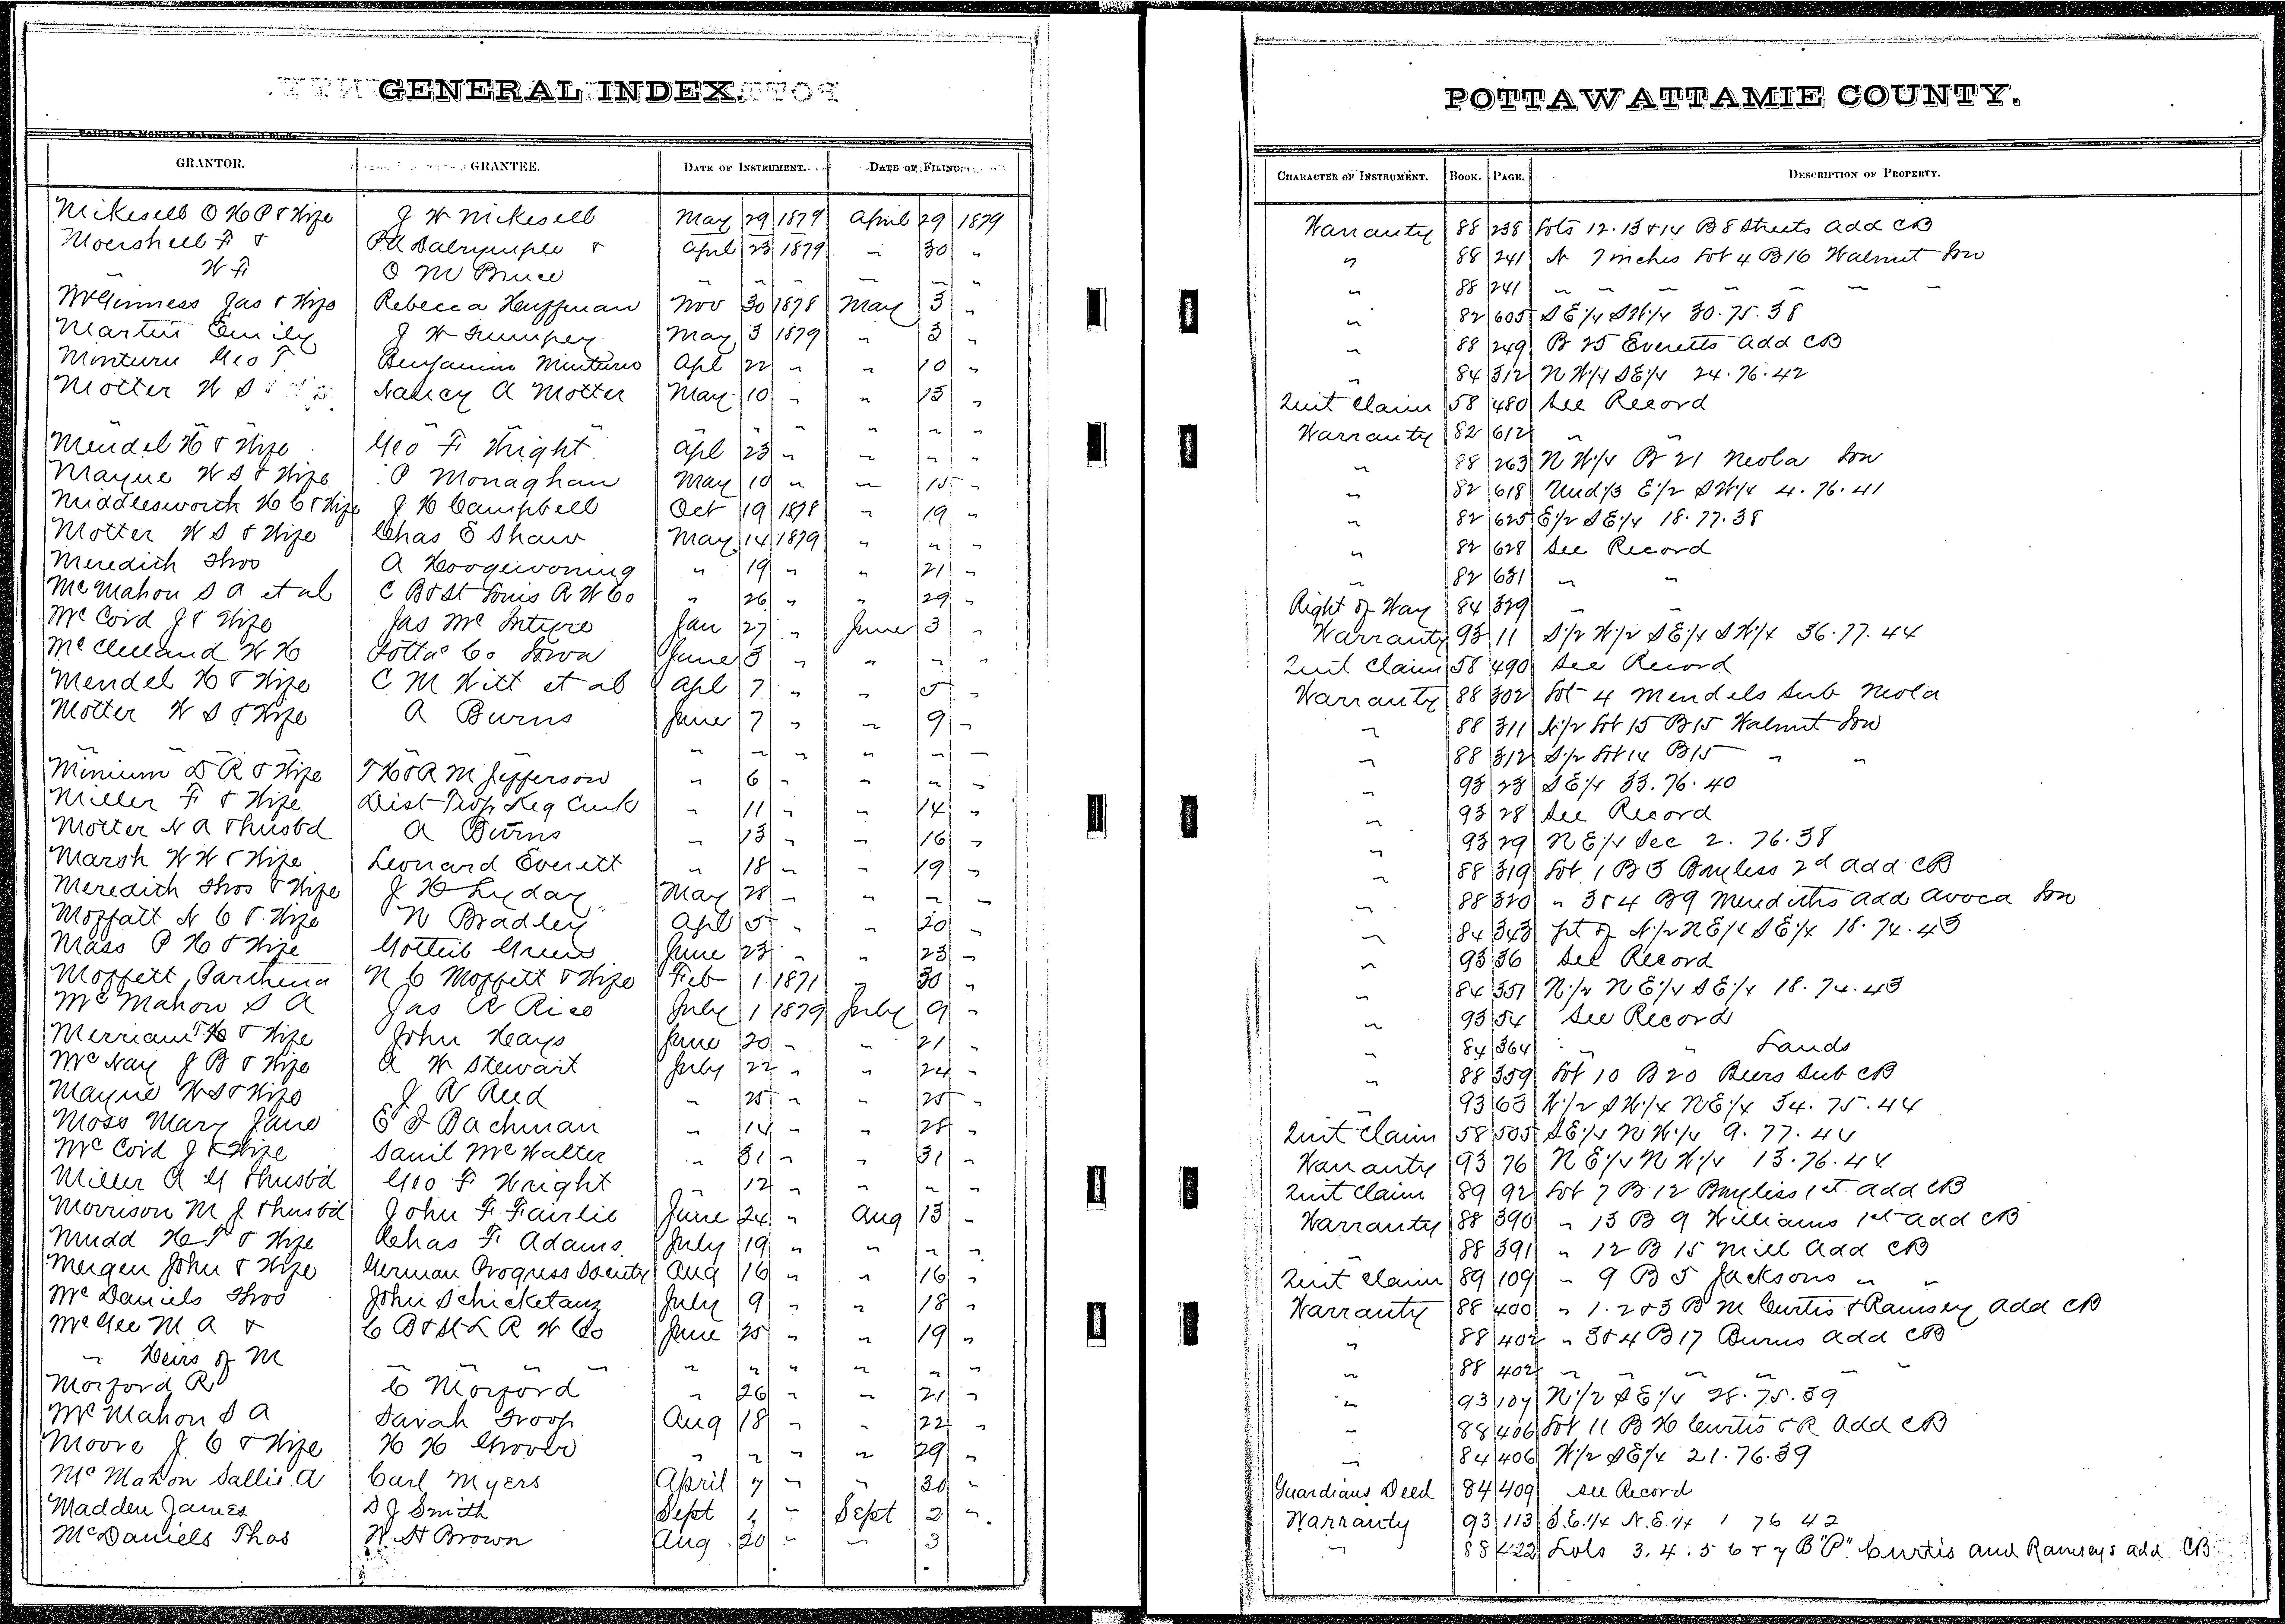 GENERAL INDEX.
GRANTOR. GRANTEE. DATE OF INSTRUMENT. DATE OF FILING.
Mikesell O H P & Wife J W Mikesell May 29 1879 April 29 1879
Moershell F & P A Dalrymple & April 23 1879 " 30 "
" W F O M Bruce " " " " " "
McGinness Jas & Wife Rebecca Huffman Nov 30 1878 May 3 "
Martin Emily J W May 3 1879 " 3 "
Minturn Geo T. Benjamin Minturn Apl 22 " " 10 "
Motter W S & Nancy A Motter May 10 " " 13 "
" " " " " " " "
Mendel H & Wife Geo F Wright Apl 23 " " " "
Mayne W S & Wife P Monaghan May 10 " " 15 "
Middlesworth H C & Wife J H Campbell Oct 19 1878 " 19 "
Motter W S & Wife Chas E Shaw May 14 1879 " " "
Meredith Thos A Hoogewoning " 19 " " 21 "
McMahon S A et al C B & St Louis R W Co " 26 " " 29 "
McCoid J & Wife Jas McIntire Jan 27 " June 3 "
McClelland W H Potta Co Iowa June 3 " " " "
Mendel H & Wife C M Witt et al Apl 7 " " 5 "
Motter W S & Wife A Burns June 7 " " 9 "
" " " " " " " "
Minium D R & Wife T H & R M Jefferson " 6 " " " "
Miller F & Wife Dist Twp Keg Creek " 11 " " 14 "
Motter N A & husbd A Burns " 13 " " 16 "
Marsh W W & Wife Leonard Everett " 18 " " 19 "
Meredith Thos & Wife J H Lyday May 28 " " " "
Moffatt N C & Wife N Bradley Apl 5 " " 20 "
Mass P H & Wife Gottleib Green June 23 " " 23 "
Moffett Parthena N C Moffett & Wife Feb 1 1871 " 30 "
McMahon S A Jas A Rice July 1 1879 July 9 "
Merriam T H & Wife John Hays June 20 " " 21 "
McNay J B & Wife A W Stewart July 22 " " 24 "
Mayne W S & Wife J N Aud " 25 " " 25 "
Moss Mary Jane E I Bachman " 14 " " 28 "
McCoid J & Wife Danil McWalter " 31 " " 31 "
Miller A G & husbd Geo F Wright " 12 " " " "
Morrison M J & husbd John F Fairlie June 24 " Aug 13 "
Mudd H T & Wife Chas F Adams July 19 " " " "
Mergen John & Wife German Progress Society Aug 16 " " 16 "
McDaniels Thos John Schicketanz July 9 " " 18 "
McGee M A & C B & St L R W Co June 25 " " 19 "
" Heirs of M " " " " " " " " "
Morford R C Morford " 26 " " 21 "
McMahon S A Sarah Troop Aug 18 " " 22 "
Moore J C & Wife H H Grover " " " " 29 "
McMahon Sallie A Carl Myers April 7 " " 30 "
Madden James D J Smith Sept 1 " Sept 2 "
McDaniels Thos W H Brown Aug 20 " " 3
POTTAWATTAMIE COUNTY.
CHARACTER OF INSTRUMENT. BOOK. PAGE. DESCRIPTION OF PROPERTY.
Warranty 88 238 Lots 12.13 & 14 B 8 Streets add CB
" 88 241 N 7 inches Lot 4 B 16 Walnut Tow
" 88 241 " " " " " " "
" 82 605 S E 1/4 S W 1/4 30.75.38
" 88 249 B 25 Everetts add CB
" 84 312 N W 1/4 S E 1/4 24.76.42
Quit Claim 58 480 See Record
Warranty 82 612 " "
" 88 263 N W 1/4 B 21 Neola Tow
" 82 618 Und 1/3 E 1/2 S W 1/4 4.76.41
" 82 625 E 1/2 S E 1/4 18.77.38
" 82 628 See Record
" 82 631 " "
Right of Way 84 329 " "
Warranty 93 11 S 1/2 W 1/2 S E 1/4 S W 1/4 36.77.44
Quit Claim 58 490 See Record
Warranty 88 302 Lot 4 Mendels Sub Neola
" 88 311 N 1/2 Lot 15 B 15 Walnut Tow
" 88 312 S 1/2 Lot 14 B 15 " "
" 93 23 S E 1/4 33.76.40
" 93 28 See Record
" 93 29 N E 1/4 Sec 2. 76.38
" 88 319 Lot 1 B 3 Bayless 2d add CB
" 88 320 " 3 & 4 B 9 Merediths add Avoca Tow
" 84 343 pt of N 1/2 N E 1/4 S E 1/4 18.74.43
" 93 36 See Record
" 84 351 N 1/2 N E 1/4 S E 1/4 18.74.43
" 93 54 See Record
" 84 364 " " Lands
" 88 359 Lot 10 B 20 Beers Sub CB
" 93 63 W 1/2 S W 1/4 N E 1/4 34.75.44
Quit Claim 58 505 S E 1/4 N W 1/4 9.77.44
Warranty 93 76 N E 1/4 N W 1/4 13.76.44
Quit Claim 89 92 Lot 7 B 12 Bayliss 1st add CB
Warranty 88 390 " 13 B 9 Williams 1st add CB
" 88 391 " 12 B 15 Mill add CB
Quit Claim 89 109 " 9 B 5 Jacksons " "
Warranty 88 400 " 1.2 & 3 B M Curtis & Ramsey add CB
" 88 402 " 3 & 4 B 17 Burns add CB
" 88 402 " " " " " "
" 93 107 N 1/2 S E 1/4 28.75.39
" 88 406 Lot 11 B H Curtis & R add CB
" 84 406 W 1/2 S E 1/4 21.76.39
Guardians Deed 84 409 See Record
Warranty 93 113 S.E. 1/4 N.E. 1/4 1 76 42
" 88 422 Lots 3.4.5 6 & 7 B "P" Curtis and Ramseys add CB